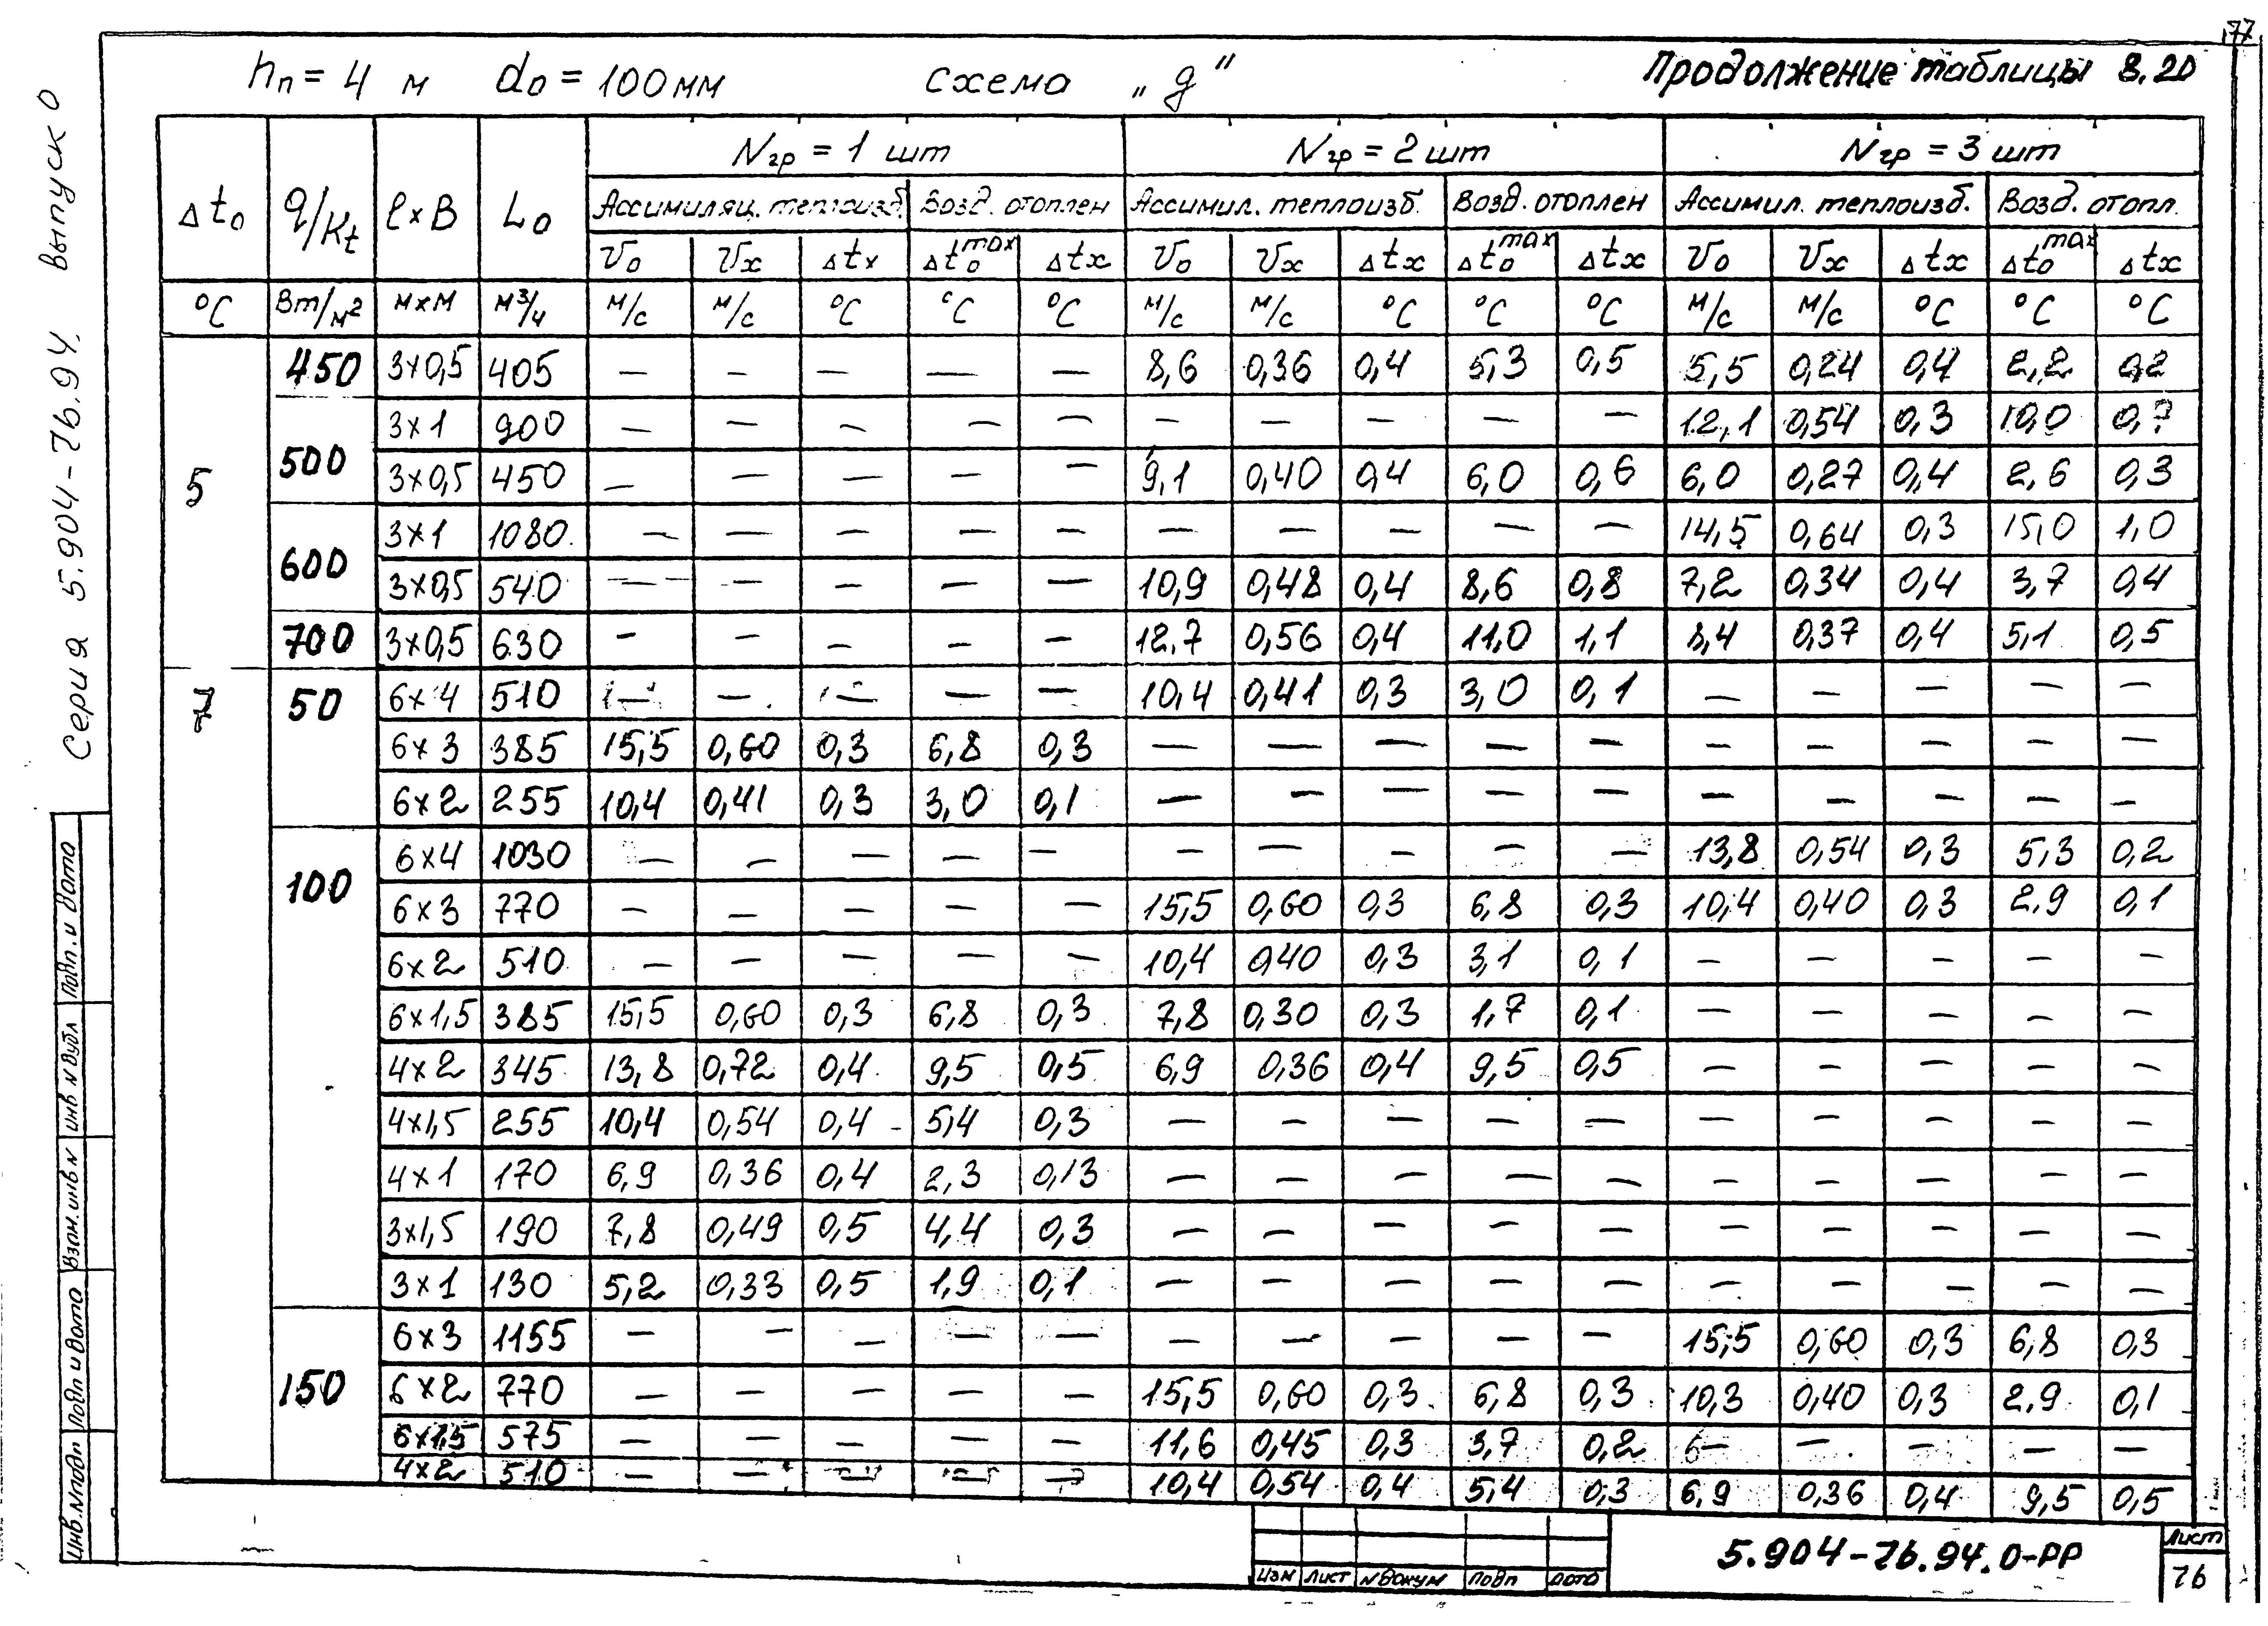 177
hп = 4 м d₀ = 100 мм схема „g" Продолжение таблицы 8.20
Серия 5.904-76.94. выпуск 0
Δt₀ q/Kt ℓ×B L₀ Nгр = 1 шт Nгр = 2 шт Nгр = 3 шт
Ассимиляц. теплоизб. Возд. отоплен Ассимил. теплоизб. Возд. отоплен Ассимил. теплоизб. Возд. отопл.
V₀ Vx Δtx Δt₀max Δtx V₀ Vx Δtx Δt₀max Δtx V₀ Vx Δtx Δt₀max Δtx
°C Вт/м² м×м м³/ч м/с м/с °C °C °C м/с м/с °C °C °C м/с м/с °C °C °C
5 450 3×0,5 405 — — — — — 8,6 0,36 0,4 5,3 0,5 5,5 0,24 0,4 2,2 0,2
500 3×1 900 — — — — — — — — — — 12,1 0,54 0,3 10,0 0,7
3×0,5 450 — — — — — 9,1 0,40 0,4 6,0 0,6 6,0 0,27 0,4 2,6 0,3
600 3×1 1080 — — — — — — — — — — 14,5 0,64 0,3 15,0 1,0
3×0,5 540 — — — — — 10,9 0,48 0,4 8,6 0,8 7,2 0,34 0,4 3,7 0,4
700 3×0,5 630 — — — — — 12,7 0,56 0,4 11,0 1,1 8,4 0,37 0,4 5,1 0,5
7 50 6×4 510 — — — — — 10,4 0,41 0,3 3,0 0,1 — — — — —
6×3 385 15,5 0,60 0,3 6,8 0,3 — — — — — — — — — —
6×2 255 10,4 0,41 0,3 3,0 0,1 — — — — — — — — — —
100 6×4 1030 — — — — — — — — — — 13,8 0,54 0,3 5,3 0,2
6×3 770 — — — — — 15,5 0,60 0,3 6,8 0,3 10,4 0,40 0,3 2,9 0,1
6×2 510 — — — — — 10,4 0,40 0,3 3,1 0,1 — — — — —
6×1,5 385 15,5 0,60 0,3 6,8 0,3 7,8 0,30 0,3 1,7 0,1 — — — — —
4×2 345 13,8 0,72 0,4 9,5 0,5 6,9 0,36 0,4 9,5 0,5 — — — — —
4×1,5 255 10,4 0,54 0,4 5,4 0,3 — — — — — — — — — —
4×1 170 6,9 0,36 0,4 2,3 0,13 — — — — — — — — — —
3×1,5 190 7,8 0,49 0,5 4,4 0,3 — — — — — — — — — —
3×1 130 5,2 0,33 0,5 1,9 0,1 — — — — — — — — — —
150 6×3 1155 — — — — — — — — — — 15,5 0,60 0,3 6,8 0,3
6×2 770 — — — — — 15,5 0,60 0,3 6,8 0,3 10,3 0,40 0,3 2,9 0,1
6×1,5 575 — — — — — 11,6 0,45 0,3 3,7 0,2 — — — — —
4×2 510 — — — — — 10,4 0,54 0,4 5,4 0,3 6,9 0,36 0,4 9,5 0,5
Инв.№подп Подп и дата Взам.инв№ инв №дубл Подп. и дата
изм лист №докум подп дата
5.904-76.94.0-РР
Лист
76